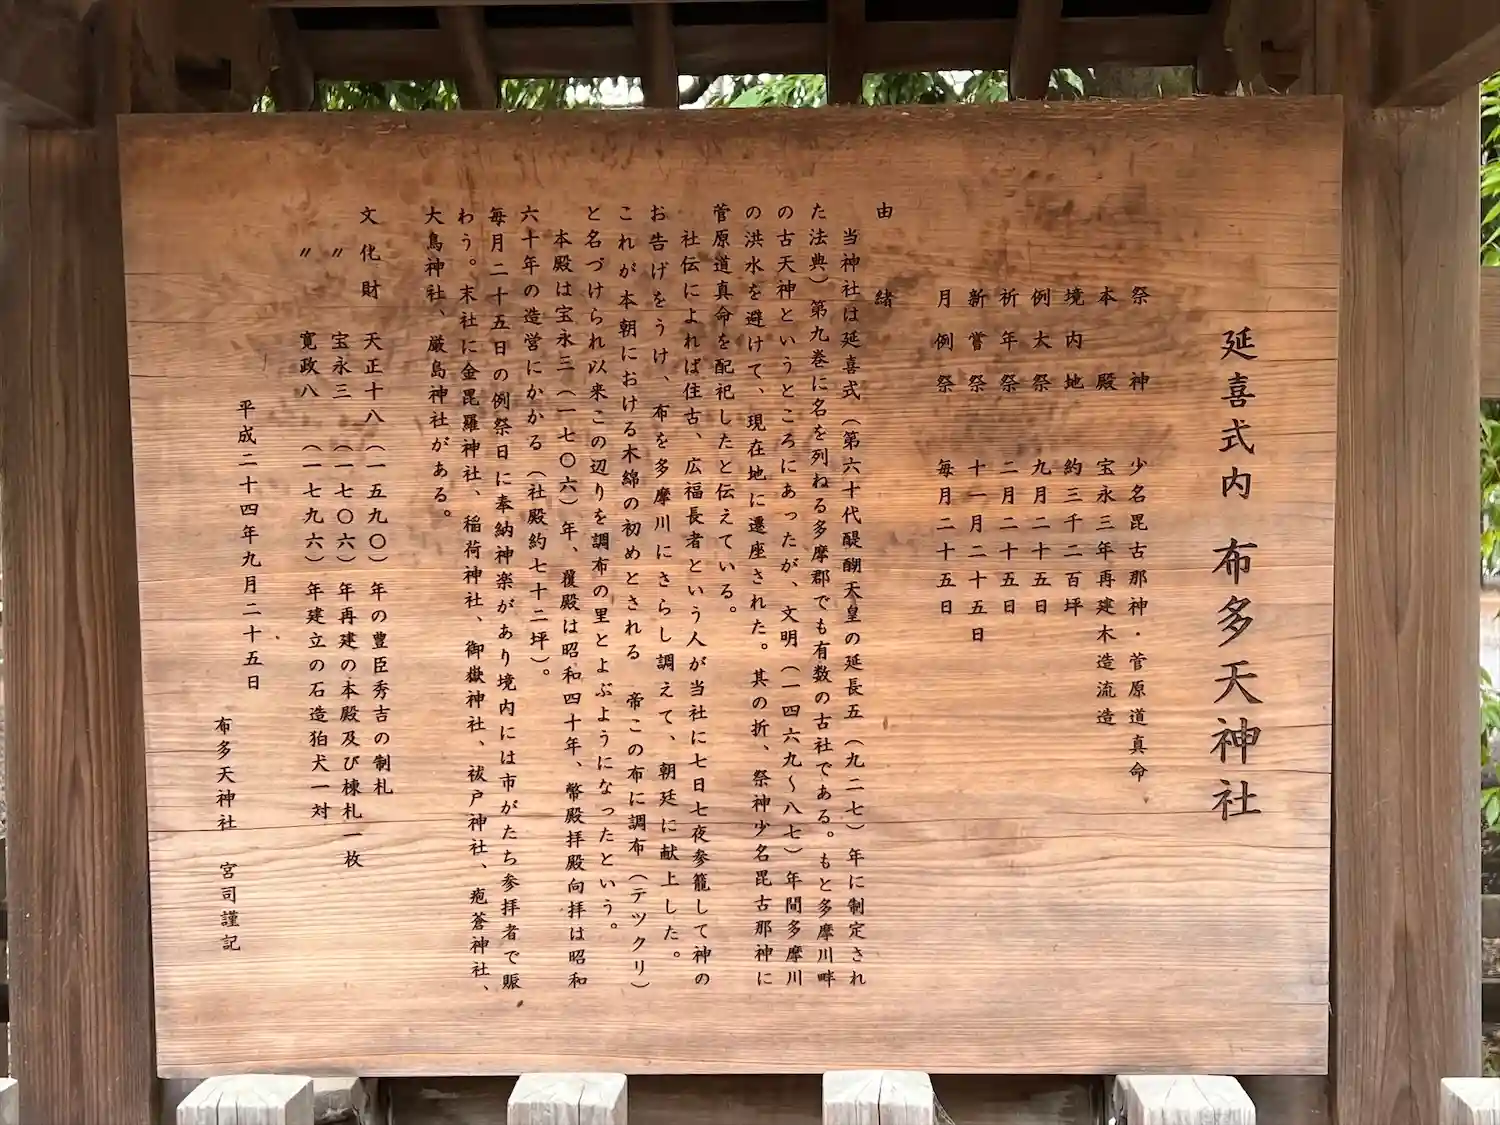 延喜式内 布多天神社
祭神 少名毘古那神・菅原道真命
本殿 宝永三年再建木造流造
境内地 約三千二百坪
例大祭 九月二十五日
祈年祭 二月二十五日
新嘗祭 十一月二十五日
月例祭 毎月二十五日
由緒
当神社は延喜式(第六十代醍醐天皇の延長五(九二七)年に制定され
た法典)第九巻に名を列ねる多摩郡でも有数の古社である。もと多摩川畔
の古天神というところにあったが、文明(一四六九〜八七)年間多摩川
の洪水を避けて、現在地に遷座された。其の折、祭神少名毘古那神に
菅原道真命を配祀したと伝えている。
社伝によれば住古、広福長者という人が当社に七日七夜参籠して神の
お告げをうけ、布を多摩川にさらし調えて、朝廷に献上した。
これが本朝における木綿の初めとされる 帝この布に調布(テツクリ)
と名づけられ以来この辺りを調布の里とよぶようになったという。
本殿は宝永三(一七〇六)年、覆殿は昭和四十年、幣殿拝殿向拝は昭和
六十年の造営にかかる(社殿約七十二坪)。
毎月二十五日の例祭日に奉納神楽があり境内には市がたち参拝者で賑
わう。末社に金毘羅神社、稲荷神社、御嶽神社、祓戸神社、疱蒼神社、
大鳥神社、厳島神社がある。
文化財 天正十八(一五九〇)年の豊臣秀吉の制札
〃 宝永三(一七〇六)年再建の本殿及び棟札一枚
〃 寛政八(一七九六)年建立の石造狛犬一対
平成二十四年九月二十五日
布多天神社 宮司謹記